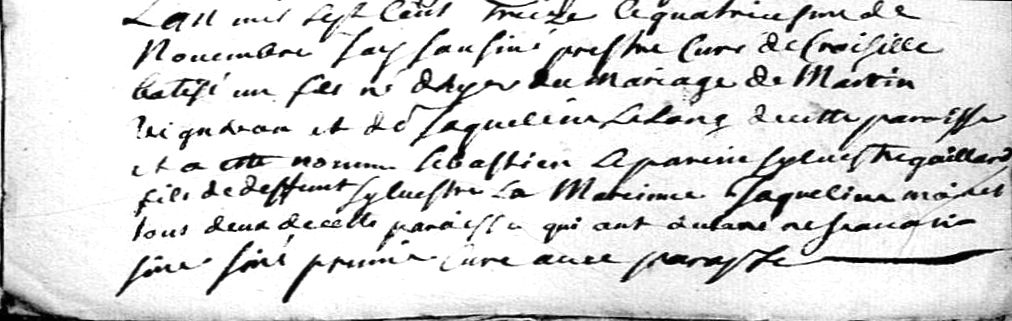 Lan mil sept Cent treize le quatriesme de
Novembre Jay sousiné prestre Curé de Croisille
batisé un fils né dhyer du mariage de Martin
et de Jaqueline Lelong de cette paroisse
et a esté nommé Sebastien Le parein Sylvestre gaillard
fils de deffunt Sylvestre La Mareinne Jaqueline
tous deux de cette paroisse qui ont declaré ne scavoir
siné curé avec paraphe